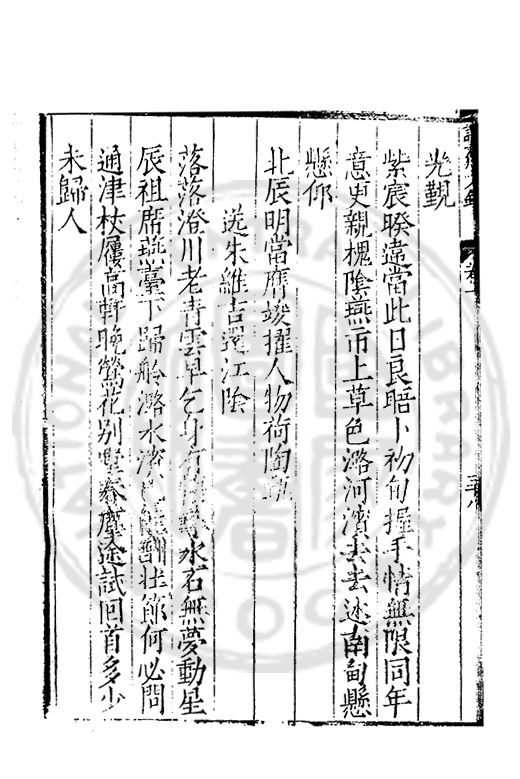 光覲
紫宸暌違當此日良晤卜初旬握手情無限同年
意更親槐陰燕市上草色潞河濱去去述南甸懸
懸仰
北辰明當膺竣擢人物荷陶甄
送朱維吉還江陰
落落澄川老青雲早乞身有水石無夢動星
辰祖席燕臺下歸舲潞水濱酬壯節何必問
通津杖屨高軒晚鶯花别墅春塵途試回首多少
未歸人